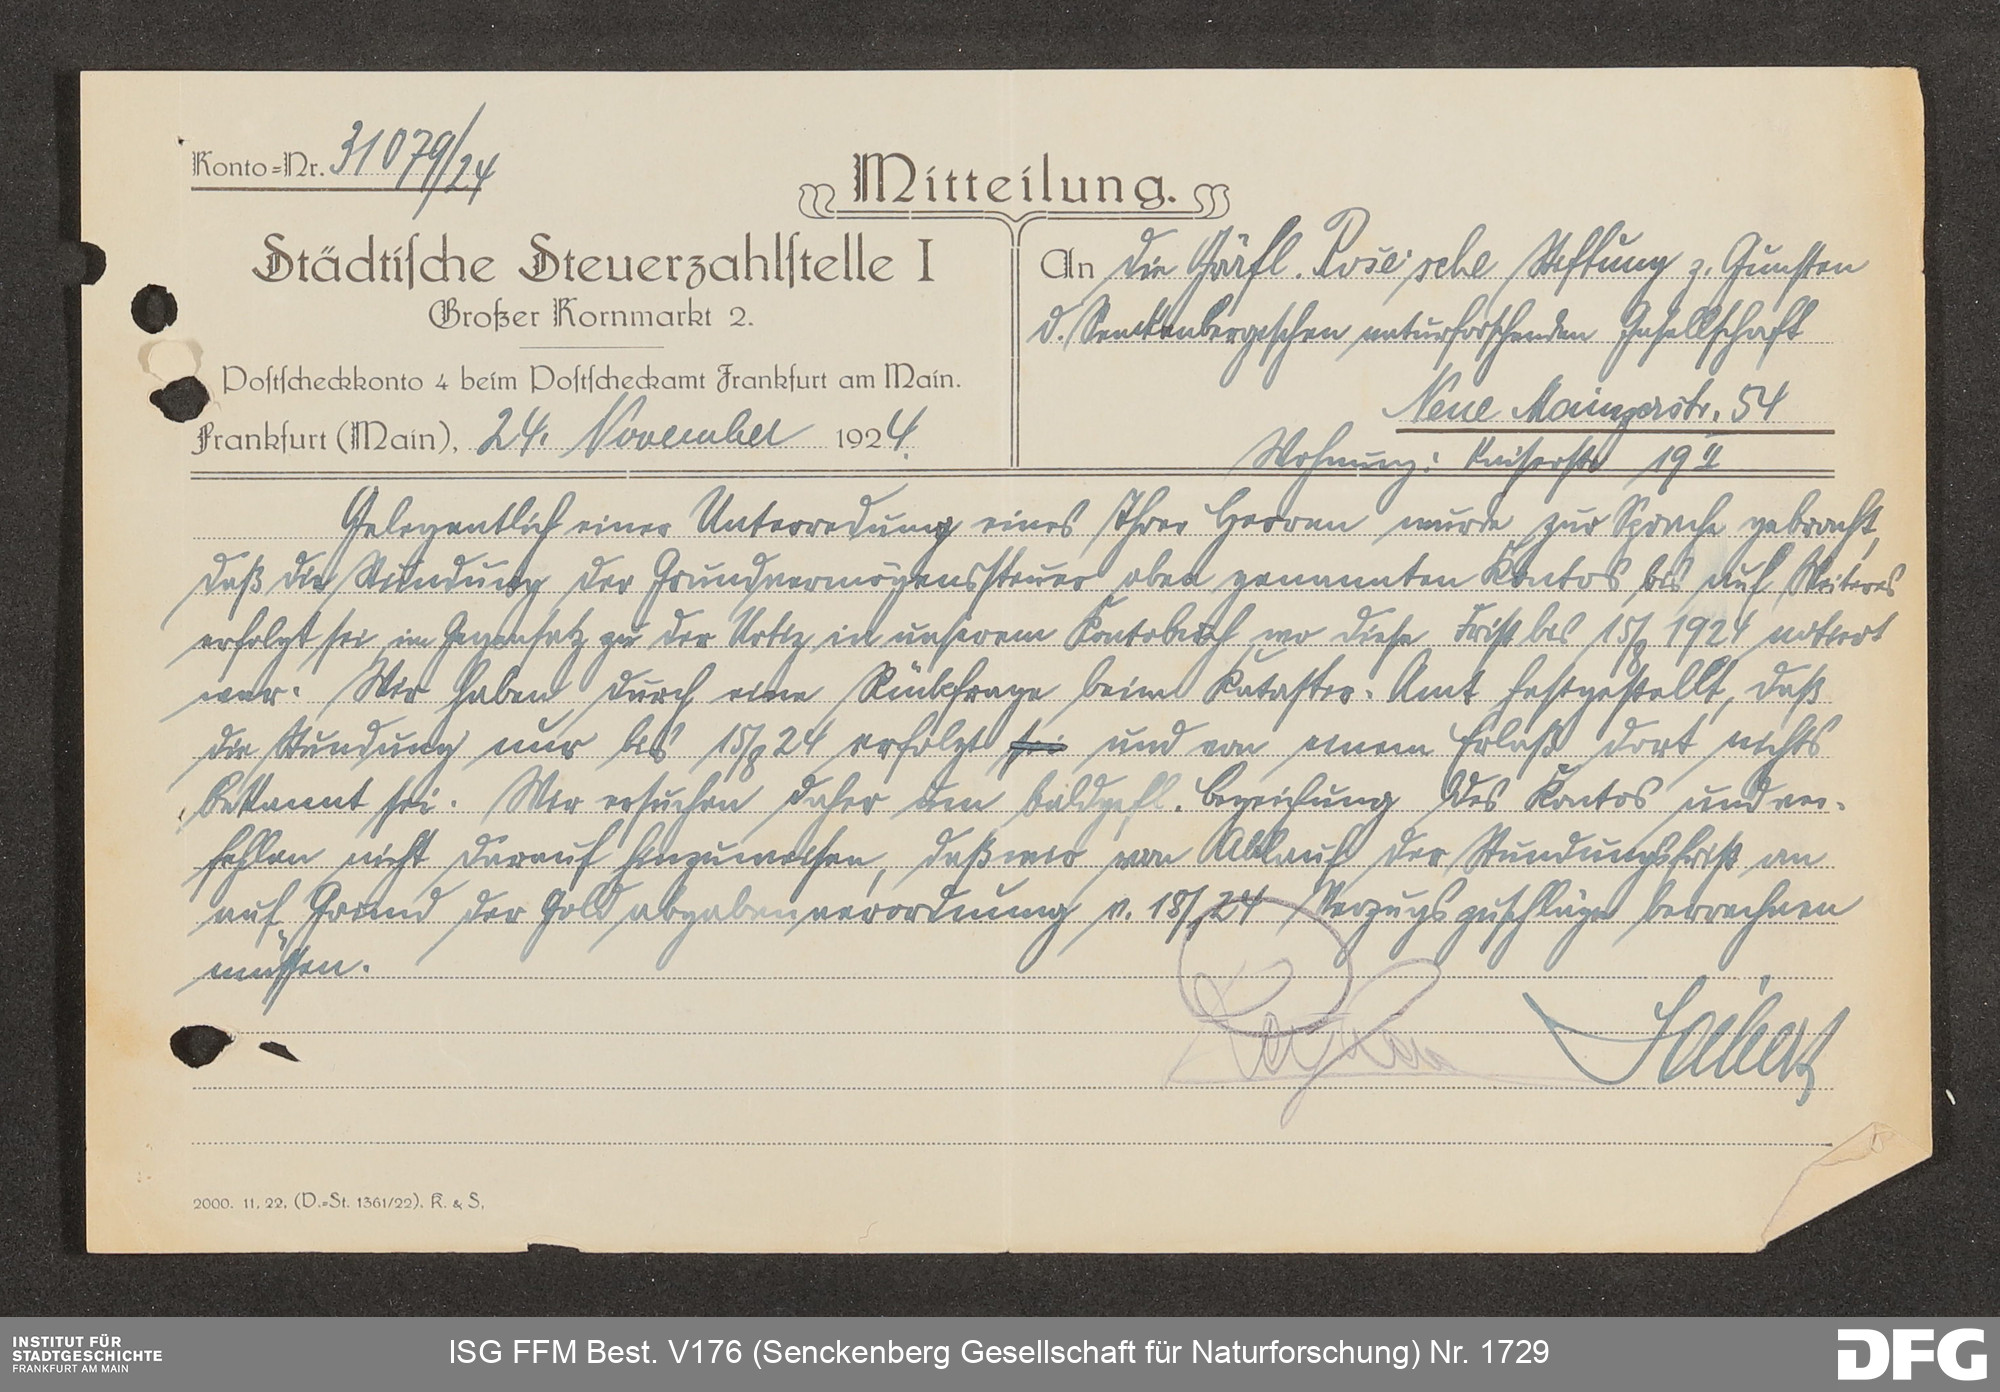 Konto=Nr. 31079/24
Mitteilung.
Städtische Steuerzahlstelle I
Großer Kornmarkt 2.
Postscheckkonto 4 beim Postscheckamt Frankfurt am Main.
Frankfurt (Main), 24. November 1924.
An die Gräfl. Bose'sche Stiftung z. Gunsten
d. Senckenbergischen naturforschenden Gesellschaft
Neue Mainzerstr. 54
Wohnung: Kaiserstr 19 II
Gelegentlich einer Unterredung eines Ihrer Herren wurde zur Sprache gebracht,
daß die Stundung der Grundvermögenssteuer oben genannten Kontos bis auf Weiteres
erfolgt sei im Gegensatz zu der Notiz in unserem Kontobuch, wo diese Frist bis 15/8 1924 notiert
war. Wir haben durch eine Rückfrage beim Kataster-Amt festgestellt, daß
die Stundung nur bis 15/8 24 erfolgt sei und von einem Erlaß dort nichts
bekannt sei. Wir ersuchen daher um baldgefl. Begleichung des Kontos und ver-
fehlen nicht darauf hinzuweisen, daß wir von Ablauf der Stundungsfrist an
auf Grund der Goldabgabenverordnung v. 24 Verzugszuschläge berechnen
müssen.
2000. 11. 22. (D.=St. 1361/22). K. & S.
INSTITUT FÜR
STADTGESCHICHTE
FRANKFURT AM MAIN
ISG FFM Best. V176 (Senckenberg Gesellschaft für Naturforschung) Nr. 1729
DFG